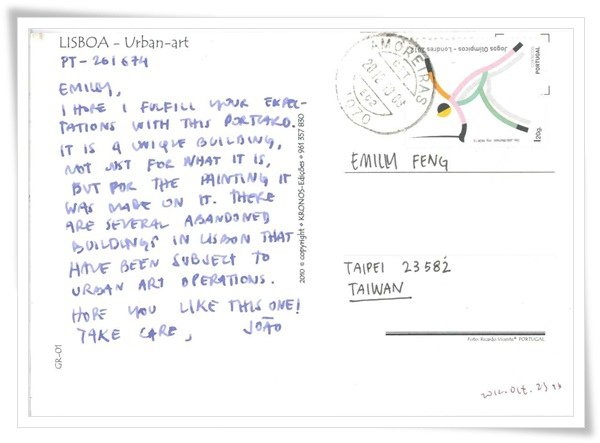 LISBOA - Urban-art
PT-261674
EMILY,
I HOPE I FULFILL YOUR EXPEC-
TATIONS WITH THIS POSTCARD.
IT IS A UNIQUE BUILDING,
NOT JUST FOR WHAT IT IS,
BUT FOR THE PAINTING IT
WAS MADE ON IT. THERE
ARE SEVERAL ABANDONED
BUILDINGS IN LISBON THAT
HAVE BEEN SUBJECT TO
URBAN ART OPERATIONS.
HOPE YOU LIKE THIS ONE!
TAKE CARE,
JOÃO
GR-01
2010 © copyright • KRONOS-Edições • 961 357 830
AMOREIRAS
1070
Jogos Olímpicos - Londres
PORTUGAL
EMILY FENG
TAIPEI 23582
TAIWAN
Foto: Ricardo Vicente® PORTUGAL